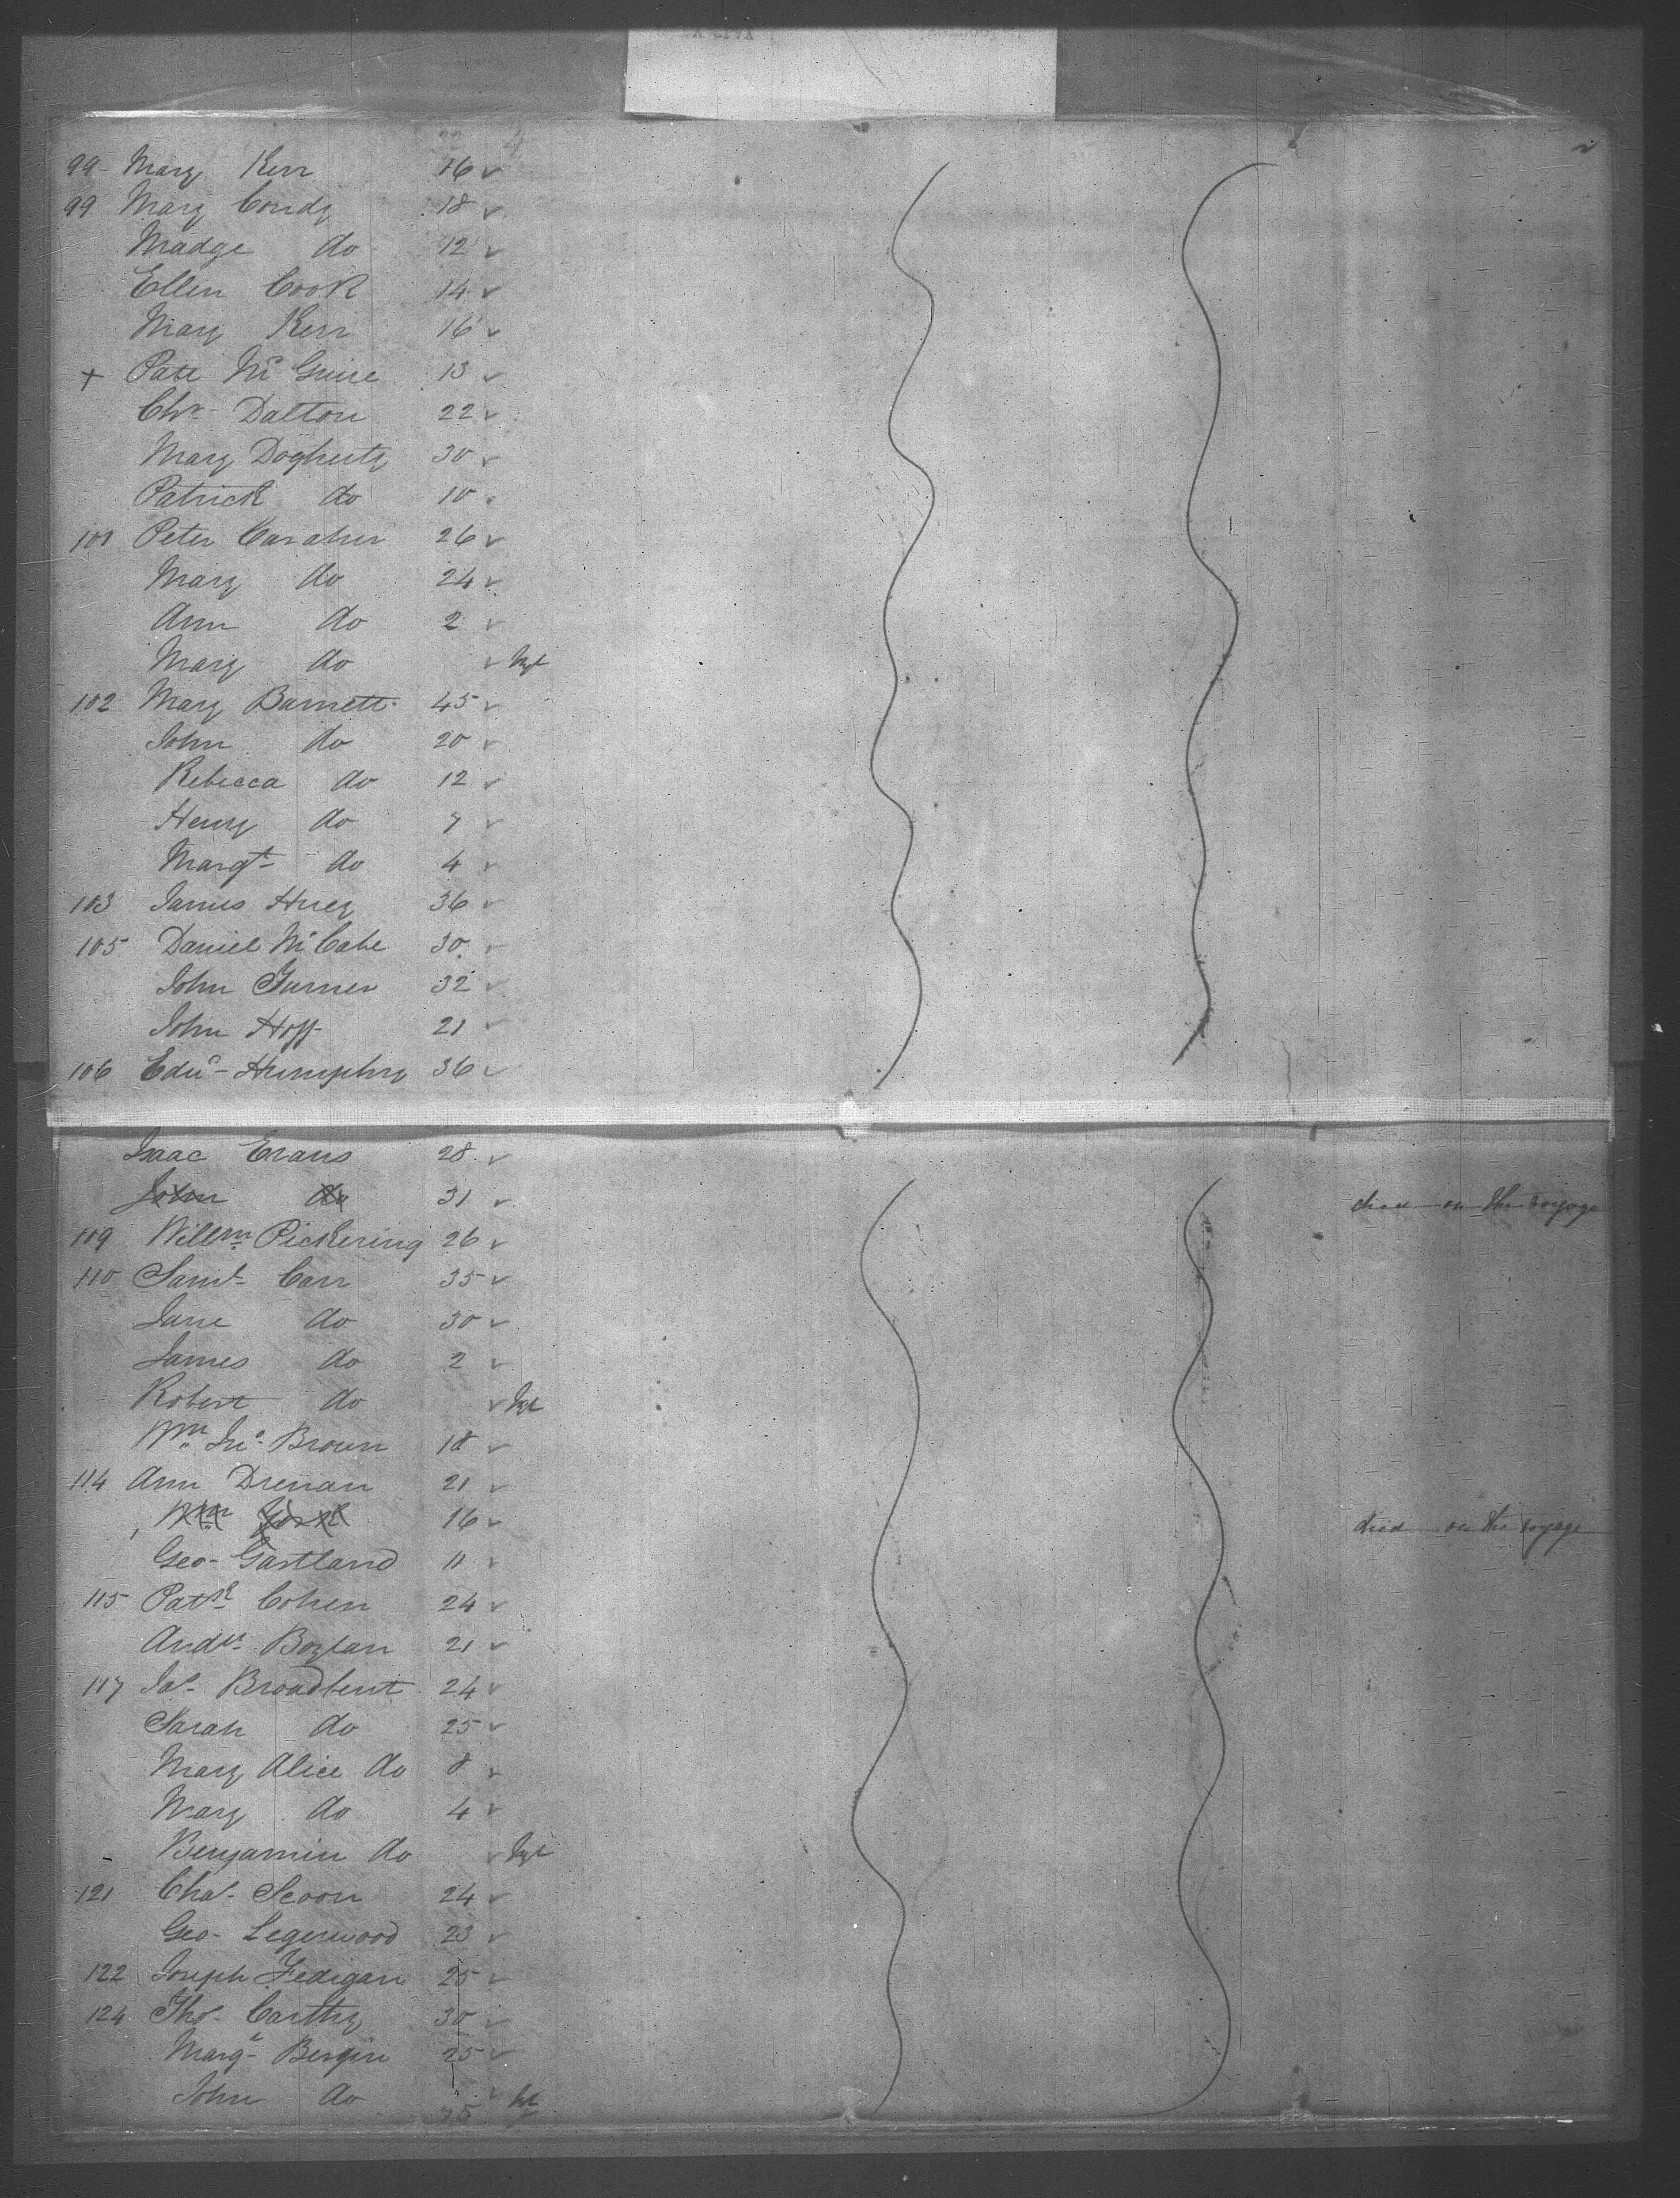 99 Mary Kerr 16 ✓
99 Mary Condy 18 ✓
Madge do 12 ✓
Ellen Cook 14 ✓
Mary Kerr 16 ✓
+ Patt McGuire 13 ✓
Chr Dalton 22 ✓
Mary Dogherty 30 ✓
Patrick do 10
101 Peter Caraher 26 ✓
Mary do 24 ✓
Ann do 2 ✓
Mary do ✓ Inft
102 Mary Barnett 45 ✓
John do 20 ✓
Rebecca do 12 ✓
Henry do 7 ✓
Margt do 4 ✓
103 James Huey 36 ✓
105 Daniel McCabe 30 ✓
John Turner 32 ✓
John Hoff 21 ✓
106 Humphry 36 ✓
Isaac Evans 28 ✓
John do 31 ✓ died on the voyage
109 Willm Pickering 26 ✓
110 Saml Carr 35 ✓
Jane do 30 ✓
James do 2 ✓
Robert do ✓ Inft
Wm Jno Brown 18 ✓
114 Ann Drenan 21 ✓
Wm 16 ✓ died on the voyage
Geo Gartland 11 ✓
115 Patk Cohen 24 ✓
Andw Boylan 21 ✓
117 Jas Broadbent 24 ✓
Sarah do 25 ✓
Mary Alice do 8 ✓
Mary do 4 ✓
Benjamin do ✓ Inft
121 Chas Scoon 24 ✓
Geo Legerwood 23 ✓
122 Joseph Fedigan 25 ✓
124 Thos Carthy 30 ✓
Margt Bergin 25 ✓
John do ✓ Inft